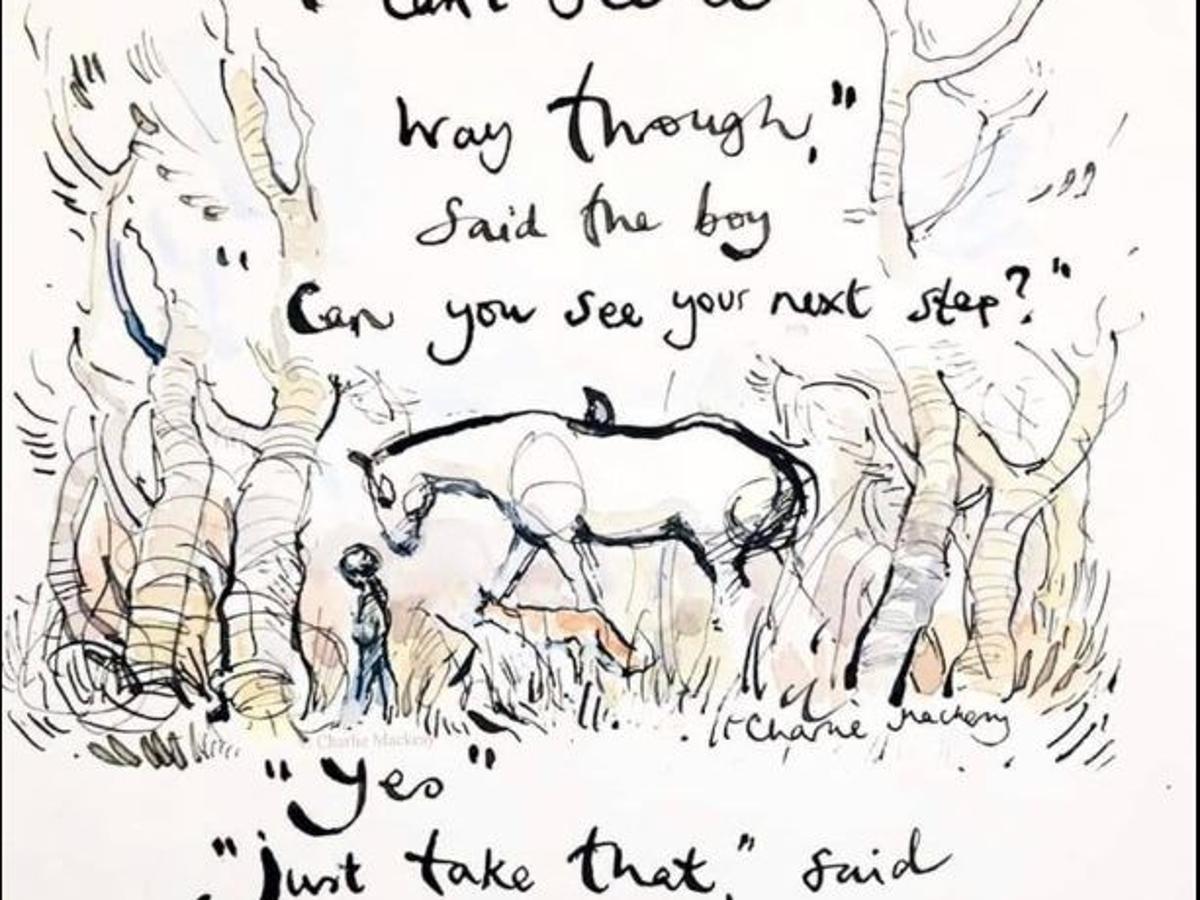 can't see a
way through,"
said the boy
"Can you see your next step?"
Charlie Mackesy
© Charlie Mackesy
"Yes"
"just take that," said